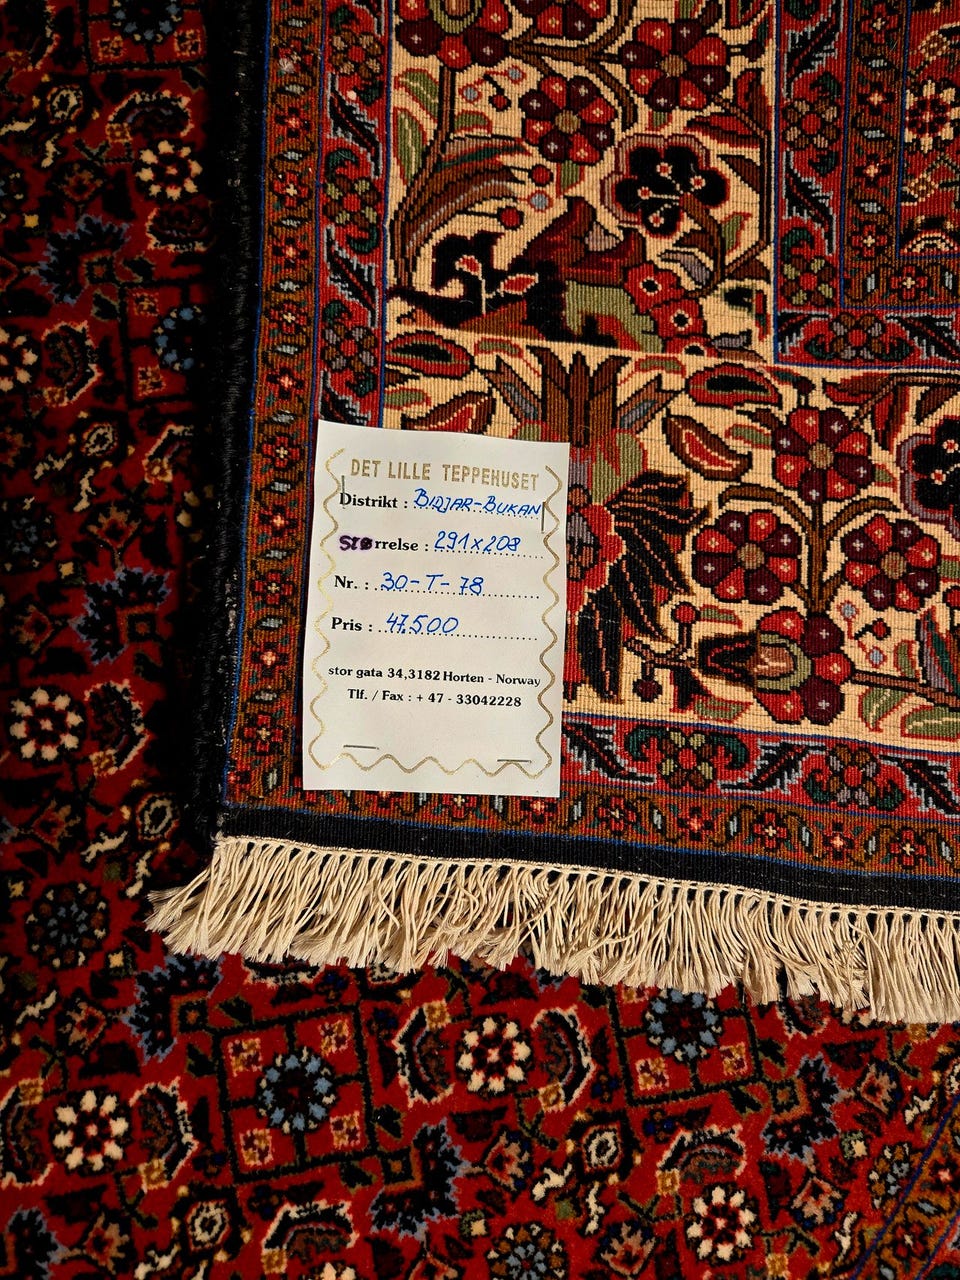 DET LILLE TEPPEHUSET
Distrikt : BIDJAR-BUKAN
Størrelse : 291x208
Nr. : 30-T-78
Pris : 47.500
stor gata 34,3182 Horten - Norway
Tlf. / Fax : + 47 - 33042228